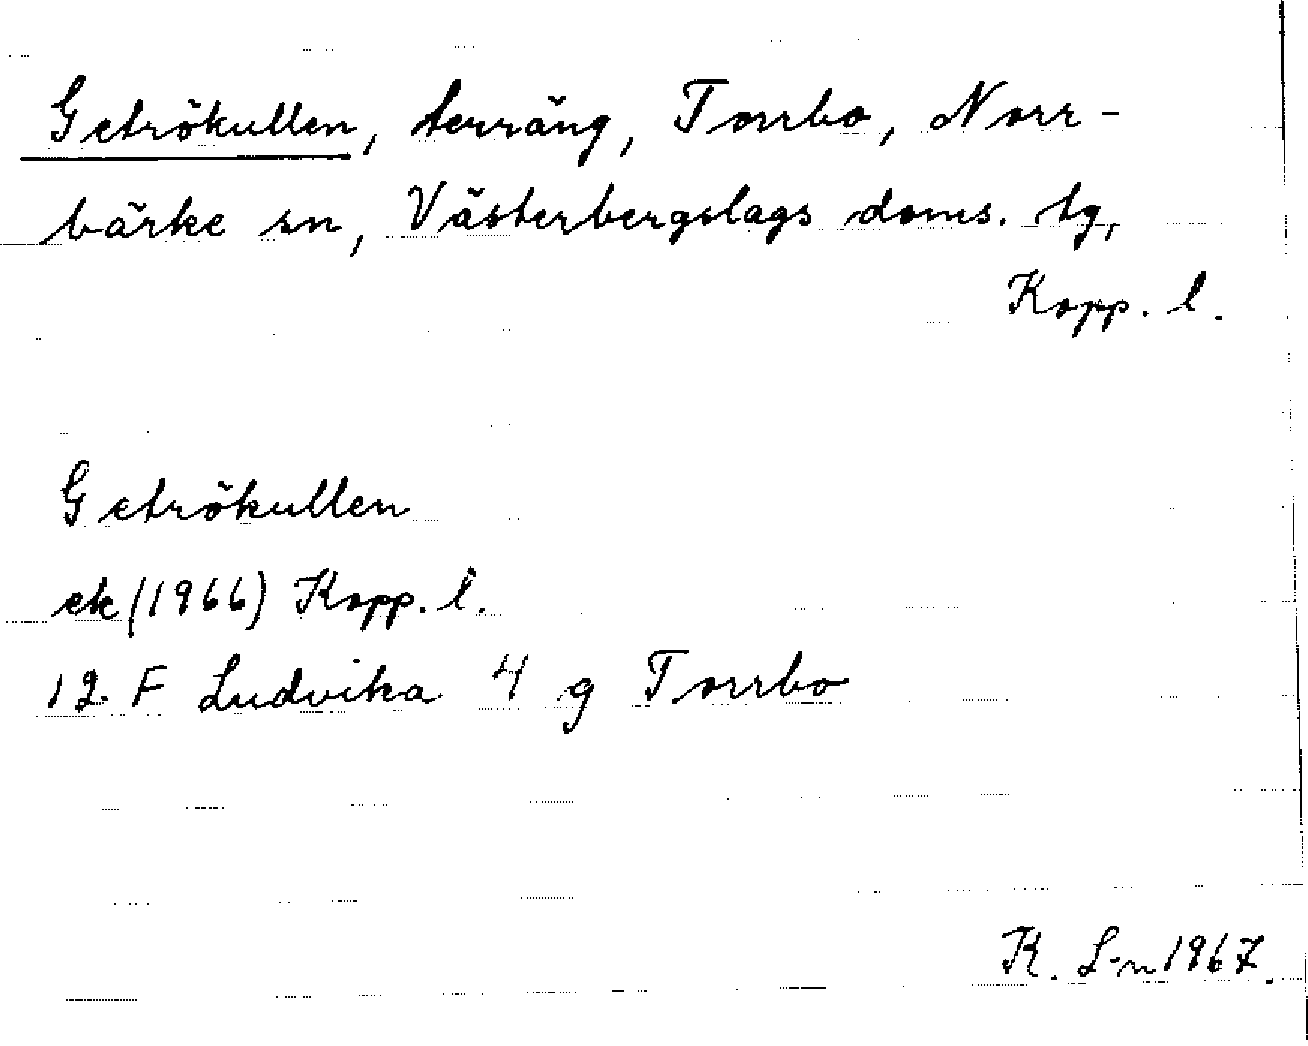 Getrökullen, terräng, Torrbo, Norr-
bärke sn, Västerbergslags doms. tg,
Kopp. l.
Getrökullen
ek (1966) Kopp. l.
12 F Ludvika 4 g Torrbo
K. L-n 1967.